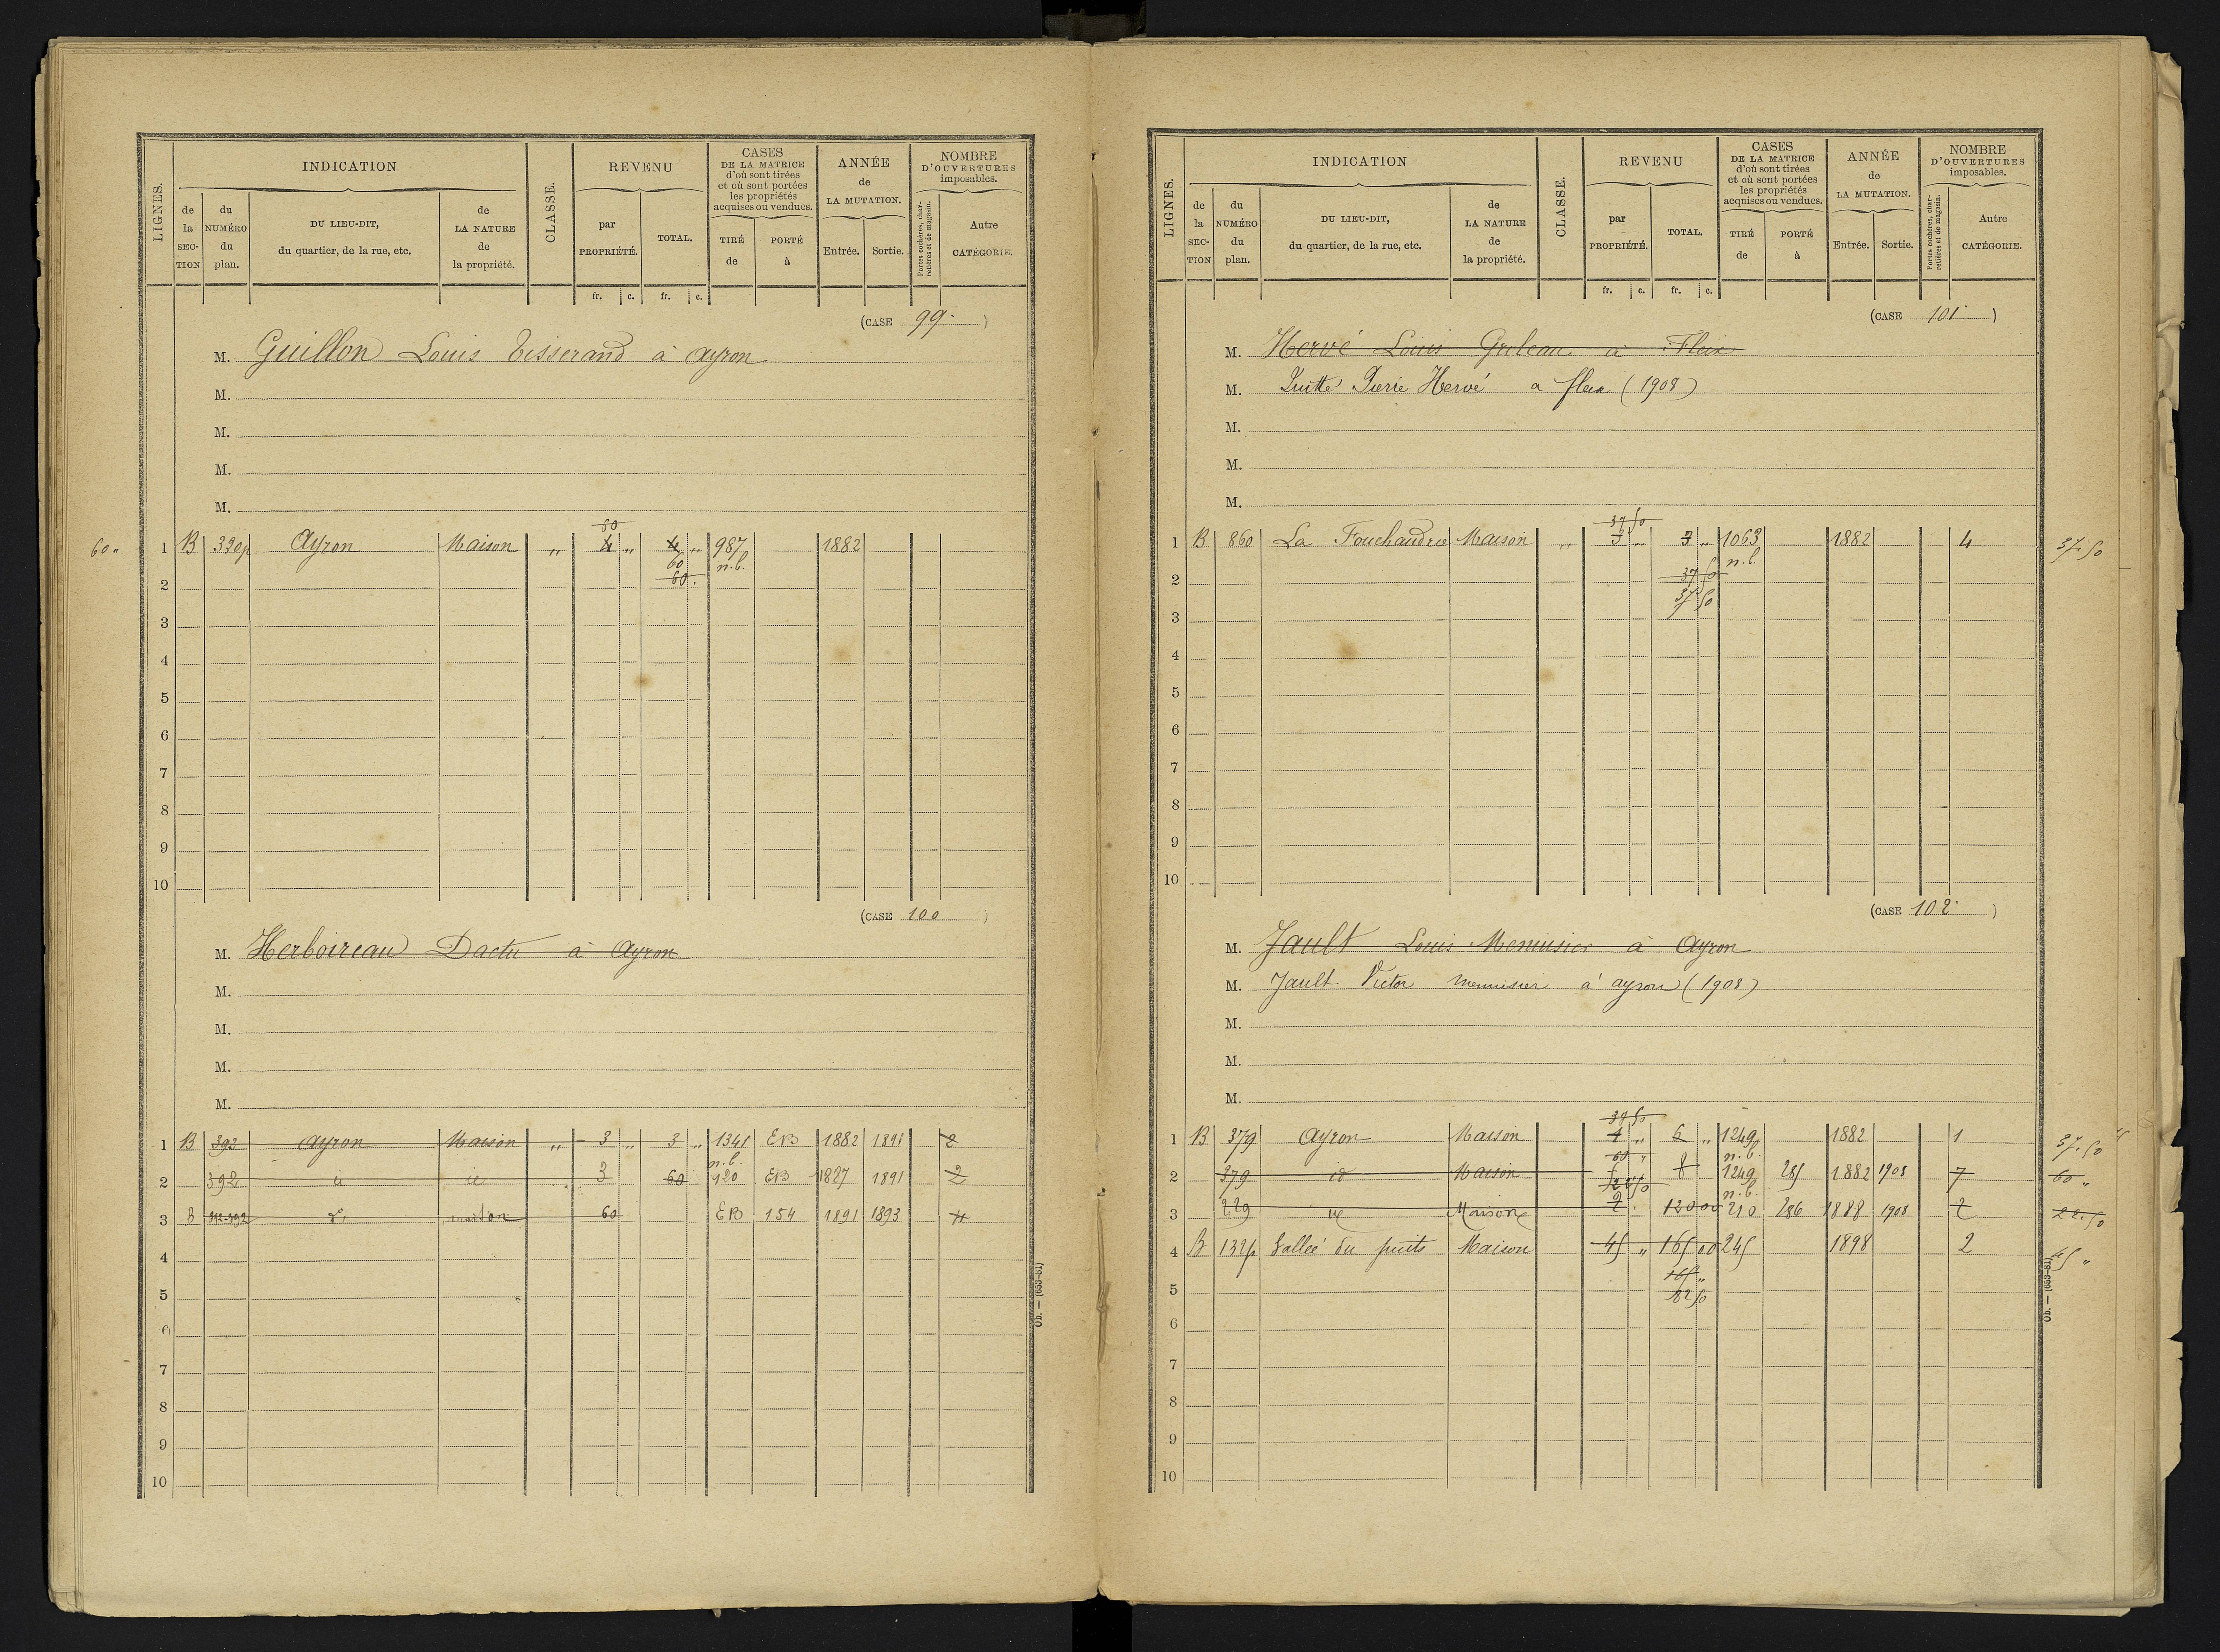 LIGNES.
INDICATION
de la SECTION
du NUMÉRO du plan.
DU LIEU-DIT, du quartier, de la rue, etc.
de LA NATURE de la propriété.
CLASSE.
REVENU
par PROPRIÉTÉ.
TOTAL.
fr. c. fr. c.
CASES DE LA MATRICE d'où sont tirées et où sont portées les propriétés acquises ou vendues.
TIRÉ de
PORTÉ à
ANNÉE de LA MUTATION.
Entrée. Sortie.
NOMBRE D'OUVERTURES imposables.
Portes cochères, charretières et de magasin.
Autre CATÉGORIE.
(CASE 99.)
M. Guillon Louis Tisserand à Ayron
M.
M.
M.
M.
60
60 „ 1 B 330p Ayron Maison „ 4 „ 4 „ 987 1882
60 n.b.
2 60.
3
4
5
6
7
8
9
10
(CASE 100)
M. Herboireau à Ayron
M.
M.
M.
M.
1 B 392 Ayron Maison „ 3 „ 3 „ 1341 EB 1882 1891 2
n.b.
2 392 id 3 60 920 EB 1887 1891 2
3 B maison 60 EB 154 1891 1893 4
4
5
6
7
8
9
10
Ob. — (653-81)
LIGNES.
INDICATION
de la SECTION
du NUMÉRO du plan.
DU LIEU-DIT, du quartier, de la rue, etc.
de LA NATURE de la propriété.
CLASSE.
REVENU
par PROPRIÉTÉ.
TOTAL.
fr. c. fr. c.
CASES DE LA MATRICE d'où sont tirées et où sont portées les propriétés acquises ou vendues.
TIRÉ de
PORTÉ à
ANNÉE de LA MUTATION.
Entrée. Sortie.
NOMBRE D'OUVERTURES imposables.
Portes cochères, charretières et de magasin.
Autre CATÉGORIE.
(CASE 101)
M. Hervé Louis à Fleix
M. Hervé a fleix (1908)
M.
M.
M.
37 50
1 B 860 La Fouchaudrie Maison „ 3 „ 3 „ 1063 1882 4 37.50
n.b.
2 37 50
3 37 50
4
5
6
7
8
9
10
(CASE 102)
M. Jault Louis Menuisier à Ayron
M. Jault Victor menuisier à ayron (1908)
M.
M.
M.
37 50
1 B 379 Ayron Maison „ 6 „ 1249 1882 1 37.50
60 „ n.b.
2 379 id Maison 8 1249 285 1882 1908 7 60 „
22 50 n.b.
3 229 id Maison 2 120 00 210 286 1888 1908 2 22.50
4 B 132p Vallée du puits Maison 45 „ 165 00 245 1898 2 45 „
165 „
5 82 50
6
7
8
9
10
Ob. — (653-81)